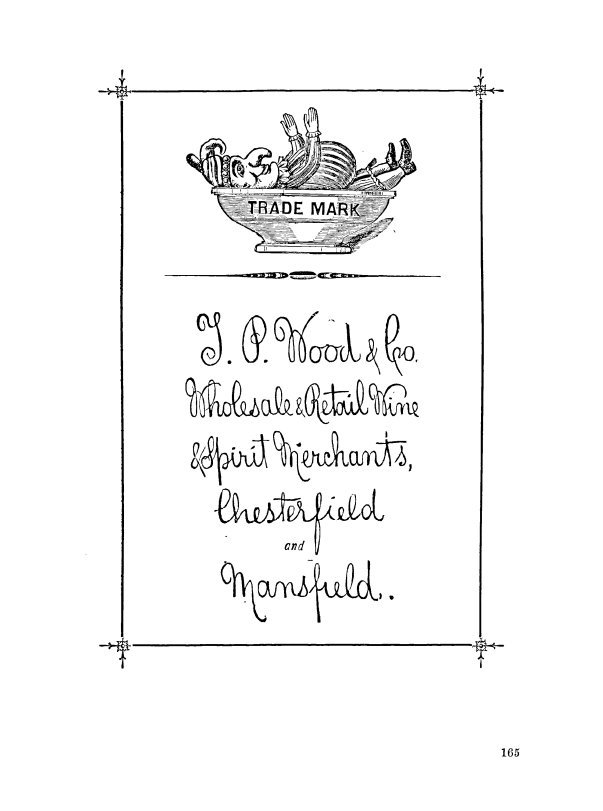 TRADE MARK
T. P. Wood & Co.
Wholesale & Retail Wine
& Spirit Merchants,
Chesterfield
and
Mansfield..
165